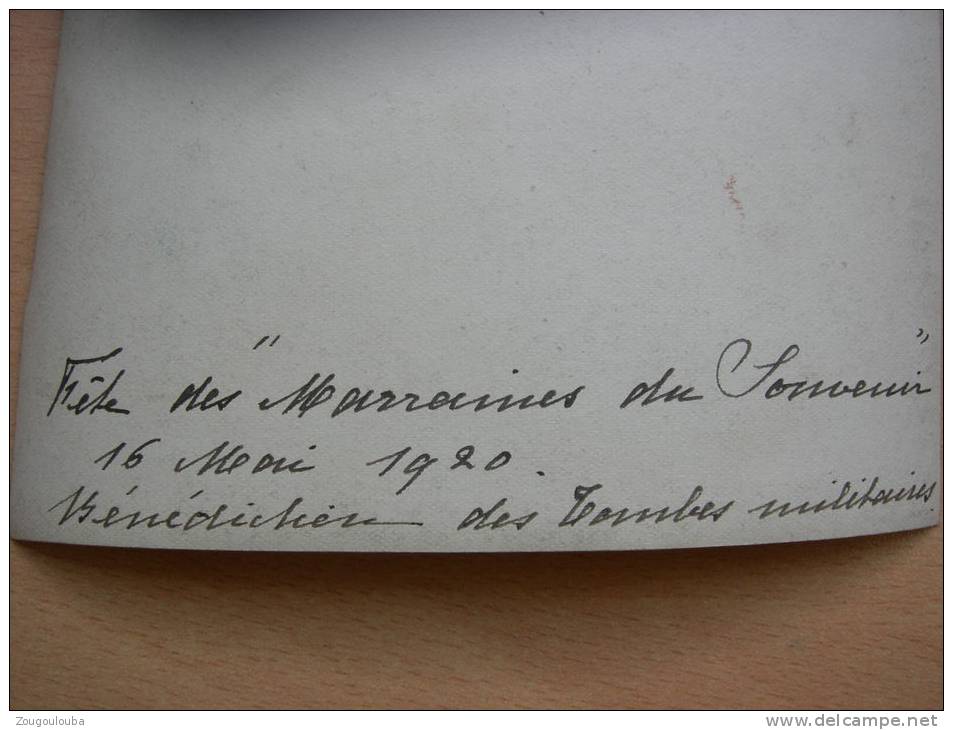 Fête des "Marraines du Souvenir"
16 Mai 1920.
Bénédiction des Tombes militaires
Zougoulouba
www.delcampe.net